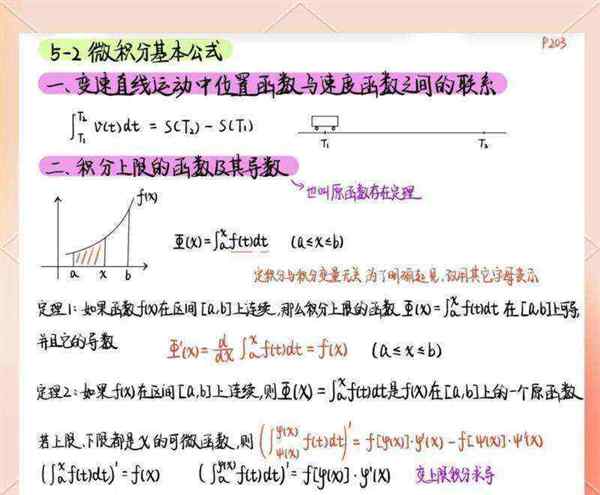 5-2 微积分基本公式
P203
一、变速直线运动中位置函数与速度函数之间的联系
∫_{T₁}^{T₂} v(t)dt = S(T₂) - S(T₁)
T₁ T₂
二、积分上限的函数及其导数
也叫原函数存在定理
f(x)
Φ(x)=∫_a^x f(t)dt (a≤x≤b)
a x b
定积分与积分变量无关 为了明确起见,改用其它字母表示
定理1:如果函数f(x)在区间[a,b]上连续,那么积分上限的函数 Φ(x)=∫_a^x f(t)dt 在[a,b]上可导,
并且它的导数 Φ'(x)= d/dx ∫_a^x f(t)dt = f(x) (a≤x≤b)
定理2:如果f(x)在区间[a,b]上连续,则Φ(x)=∫_a^x f(t)dt是f(x)在[a,b]上的一个原函数
若上限、下限都是x的可微函数,则 (∫_{ψ(x)}^{φ(x)} f(t)dt)' = f[φ(x)]·φ'(x) - f[ψ(x)]·ψ'(x)
(∫_a^x f(t)dt)' = f(x) (∫_a^{φ(x)} f(t)dt)' = f[φ(x)]·φ'(x) 变上限积分求导